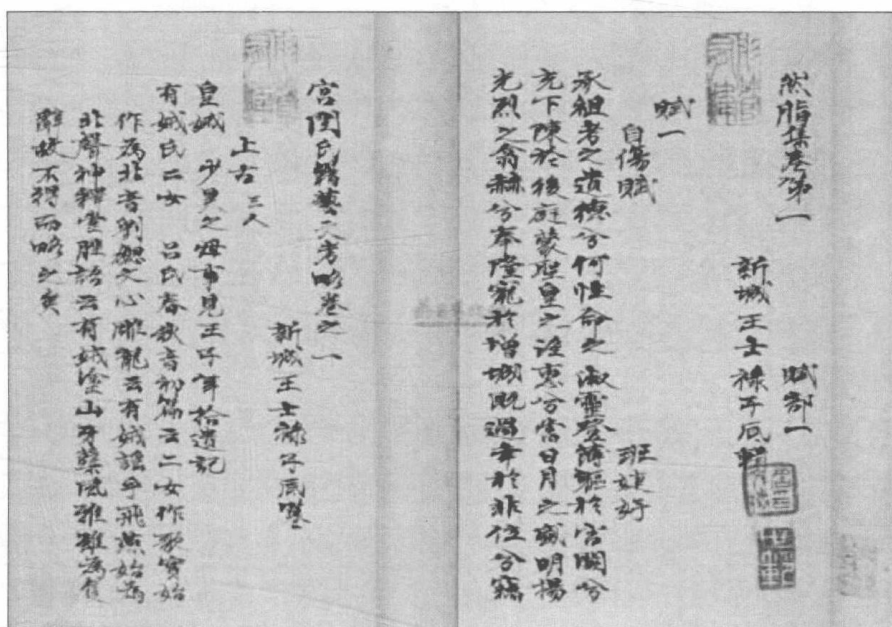 然脂集卷第一
賦部一
新城王士祿子底輯
賦一
自傷賦
班婕妤
承祖考之遺德兮何性命之淑靈登薄軀於宮闕兮
充下陳於後庭蒙聖皇之渥惠兮當日月之盛明揚
光烈之翕赫兮奉隆寵於增城既過幸於非位兮竊
宮閨氏籍藝文考略卷之一
新城王士祿子底
上古 三人
皇娥 少昊之母事見王子年拾遺記
有娀氏二女 呂氏春秋音初篇云二女作歌實始
作為北音劉勰文心雕龍云有娀謠乎飛燕始為
北聲神釋堂脞語云有娀塗山牙櫱風雅雖為隻
辭故不得而略之矣